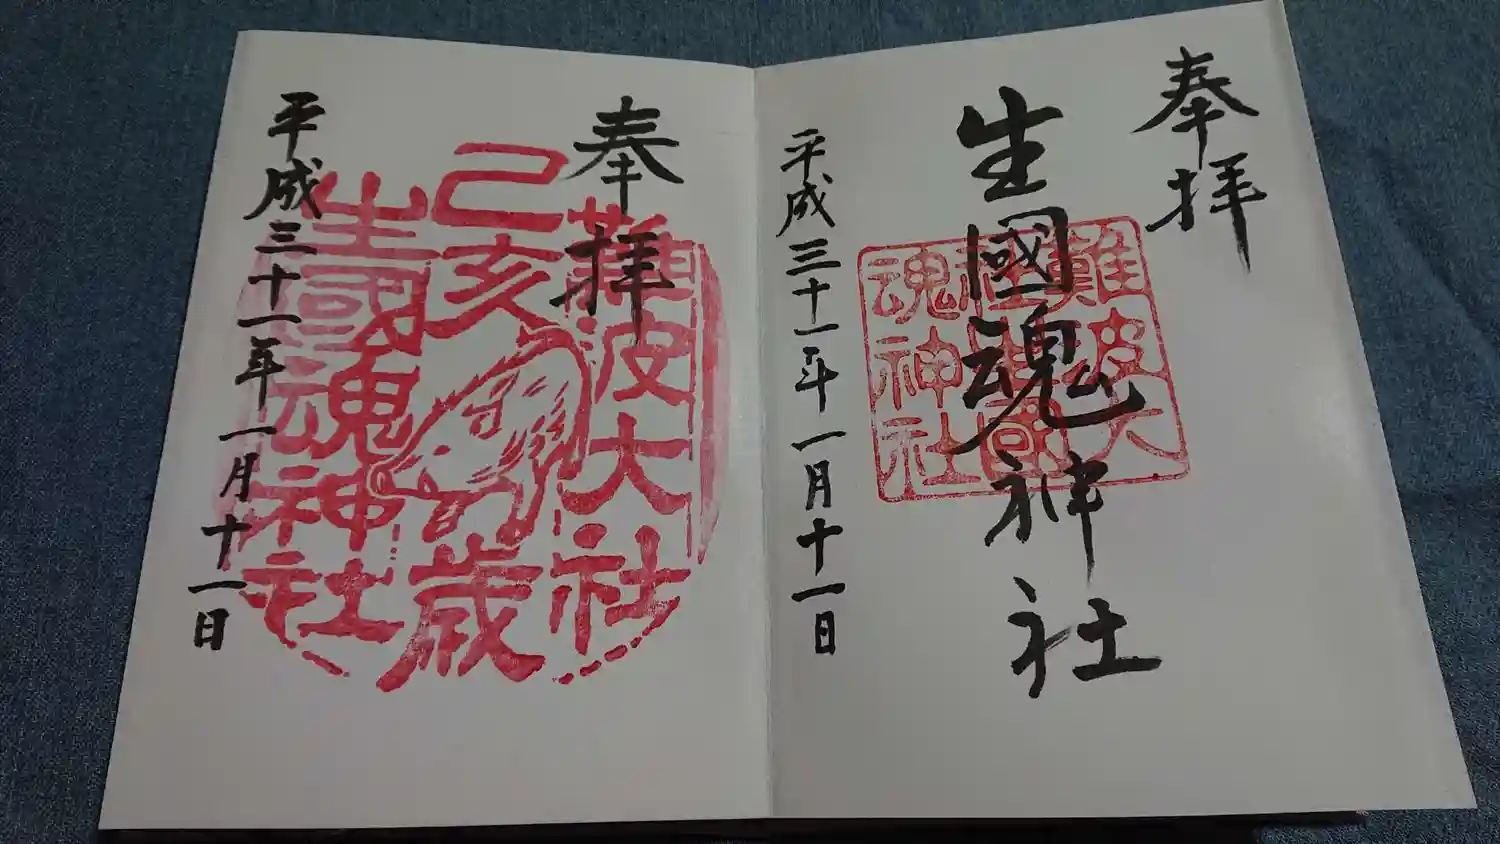 奉拝
生國魂神社
難波大
社生國
魂神社
平成三十一年一月十一日
奉拝
難波大社
己亥
歳
生國魂神社
平成三十一年一月十一日